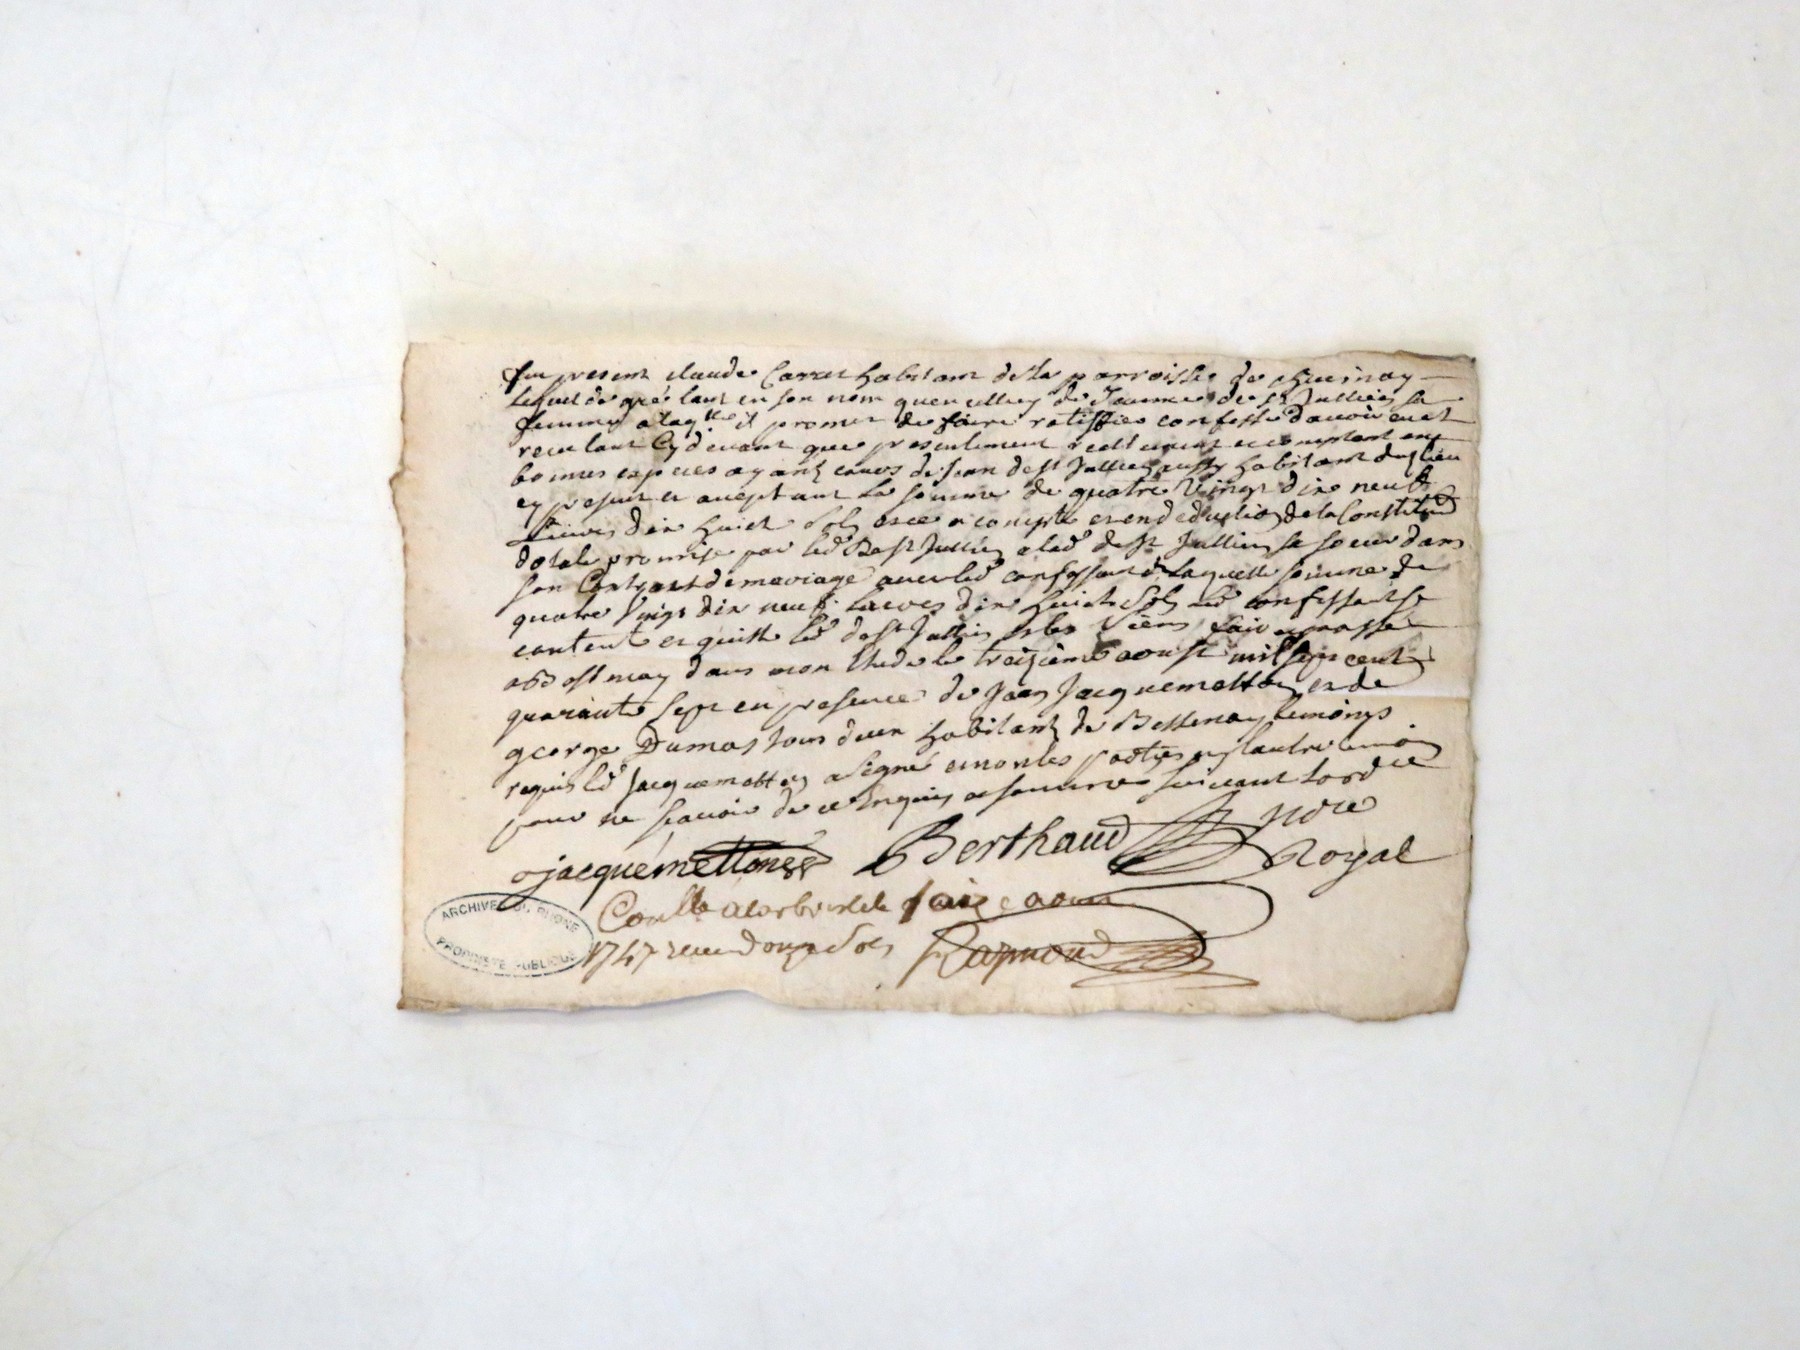 fut present claude Carret habitant de la parroisse de
lequel de gré tant en son nom que de Jeanne de st Jullien sa
femme a laqlle il promet de faire ratiffier confesse davoir eu et
receu tant cydevant que presentement reellement et comptant en
bonnes especes ayant cours de Jean de st Jullien aussy habitant dud lieu
cy present et aceptant la somme de quatre vingt dix neuf
Livres dix huict sols et ce a compte et en deduction de la Constitution
dotale promise par led De st Jullien a lad de st Jullien sa soeur dans
son Contract de mariage avec led confessant de laquelle somme de
quatre vingt dix neuf Livres dix huict sols led confessant se
contente et quitte led de st Jullien et les siens fait et passé
a dans mon Etude le treizieme aoust mil sept cent
quarante sept en presence de Jean Jacquemetton et de
george Dumas tous deux habitants de Bessenay temoins
requis led Jacquemetton a signé et non les parties ny lautre temoin
pour ne scavoir de ce Enquis et sommes suivant lordce
Jacquemetton Berthaud Nore
Royal
Conllé a larbresle le saize aoust
1747 receu douze sols Raymond
ARCHIVES DU RHONE
PROPRIÉTÉ PUBLIQUE